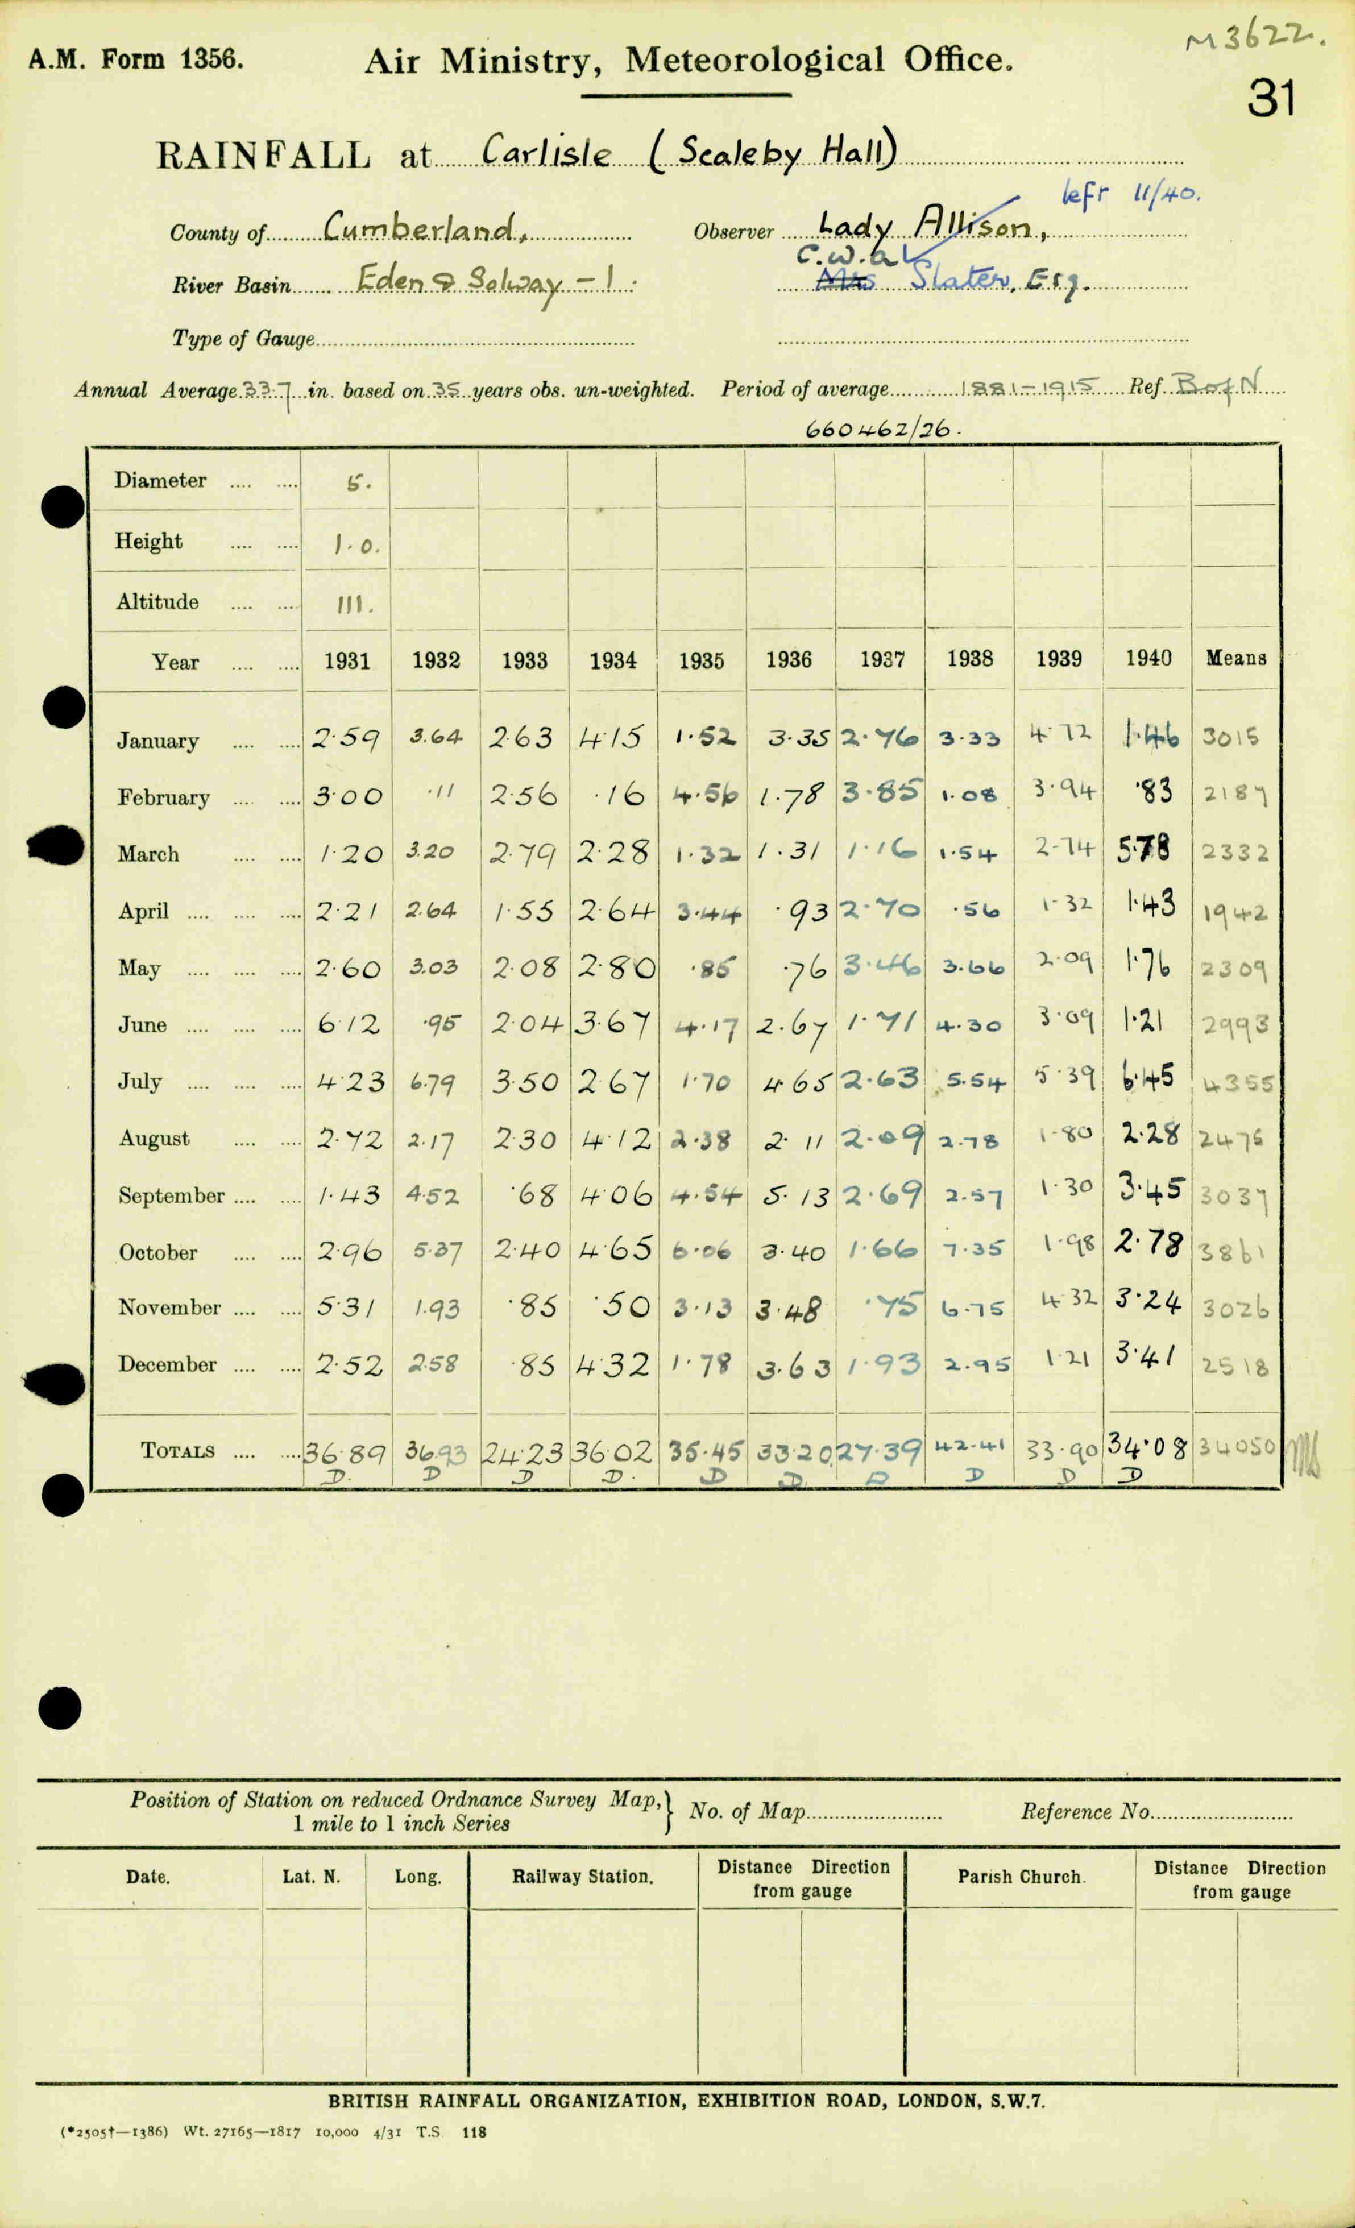 M3622.
A.M. Form 1356. Air Ministry, Meteorological Office.
31
RAINFALL at Carlisle (Scaleby Hall)
left 11/40.
County of Cumberland, Observer Lady Allison,
C.W.A
River Basin Eden & Solway - 1. Mrs Slater, Esq.
Type of Gauge
Annual Average 33.7 in. based on 35 years obs. un-weighted. Period of average 1881-1915 Ref. B of N
660462/26.
Diameter 5.
Height 1.0.
Altitude 111.
Year 1931 1932 1933 1934 1935 1936 1937 1938 1939 1940 Means
January 2.59 3.64 2.63 4.15 1.52 3.35 2.76 3.33 4.72 1.46 3015
February 3.00 .11 2.56 .16 4.56 1.78 3.85 1.08 3.94 .83 2187
March 1.20 3.20 2.79 2.28 1.32 1.31 1.16 1.54 2.74 5.78 2332
April 2.21 2.64 1.55 2.64 3.44 .93 2.70 .56 1.32 1.43 1942
May 2.60 3.03 2.08 2.80 .85 .76 3.46 3.66 2.09 1.76 2309
June 6.12 .95 2.04 3.67 4.17 2.67 1.71 4.30 3.09 1.21 2993
July 4.23 6.79 3.50 2.67 1.70 4.65 2.63 5.54 5.39 6.45 4355
August 2.72 2.17 2.30 4.12 2.38 2.11 2.09 2.78 1.80 2.28 2475
September 1.43 4.52 .68 4.06 4.54 5.13 2.69 2.57 1.30 3.45 3037
October 2.96 5.37 2.40 4.65 6.06 3.40 1.66 7.35 1.98 2.78 3861
November 5.31 1.93 .85 .50 3.13 3.48 .75 6.75 4.32 3.24 3026
December 2.52 2.58 .85 4.32 1.78 3.63 1.93 2.95 1.21 3.41 2518
TOTALS 36.89 36.93 24.23 36.02 35.45 33.20 27.39 42.41 33.90 34.08 34050
D. D D D. D D. D D D D
Position of Station on reduced Ordnance Survey Map, } No. of Map Reference No.
1 mile to 1 inch Series
Date. Lat. N. Long. Railway Station. Distance Direction Parish Church. Distance Direction
from gauge from gauge
BRITISH RAINFALL ORGANIZATION, EXHIBITION ROAD, LONDON, S.W.7.
(*2505†—1386) Wt. 27165—1817 10,000 4/31 T.S. 118